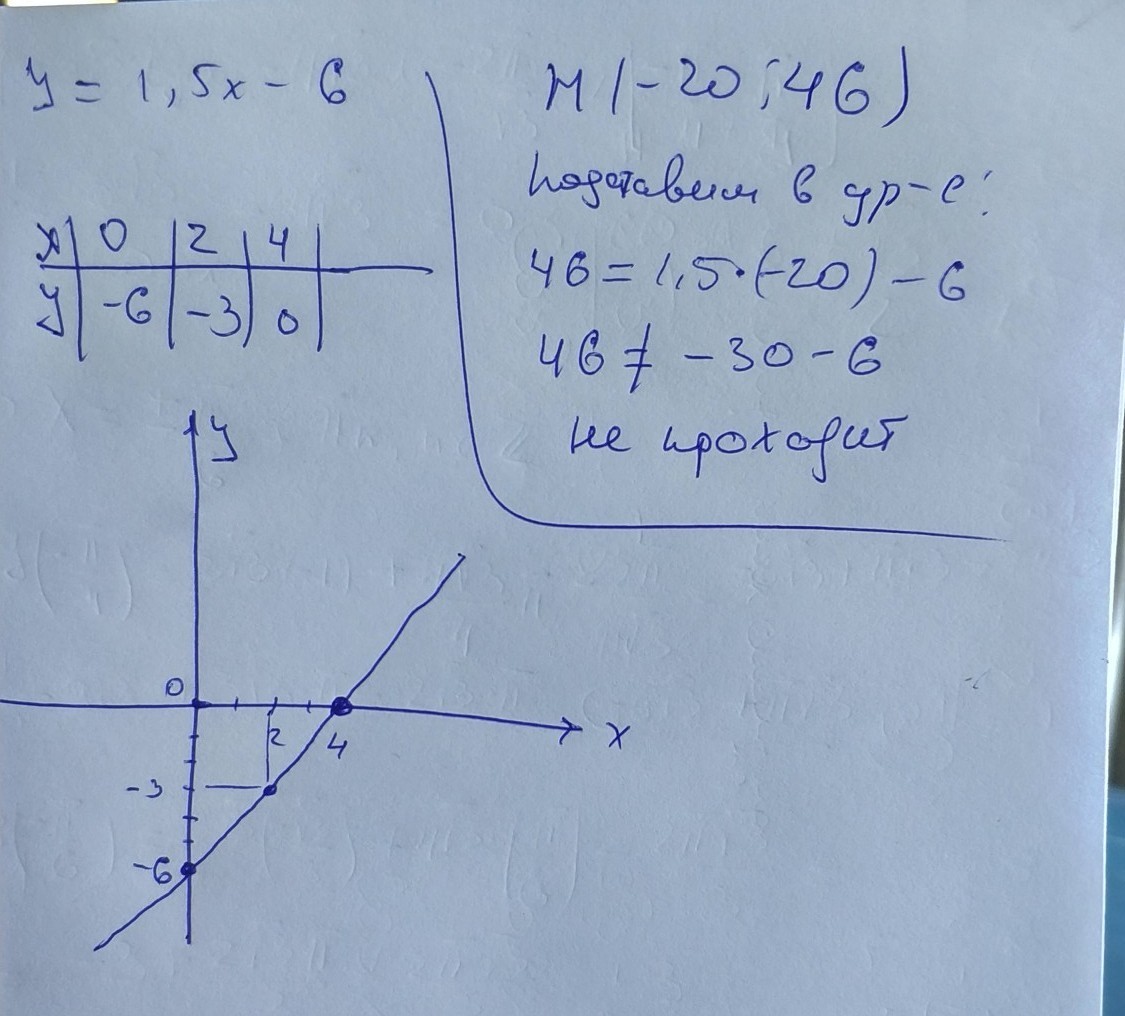 y = 1,5x - 6
x | 0 | 2 | 4 |
y | -6 | -3 | 0 |
M(-20; 46)
подставим в ур-е:
46 = 1,5·(-20) - 6
46 ≠ -30 - 6
не проходит
y
0
2 4
x
-3
-6